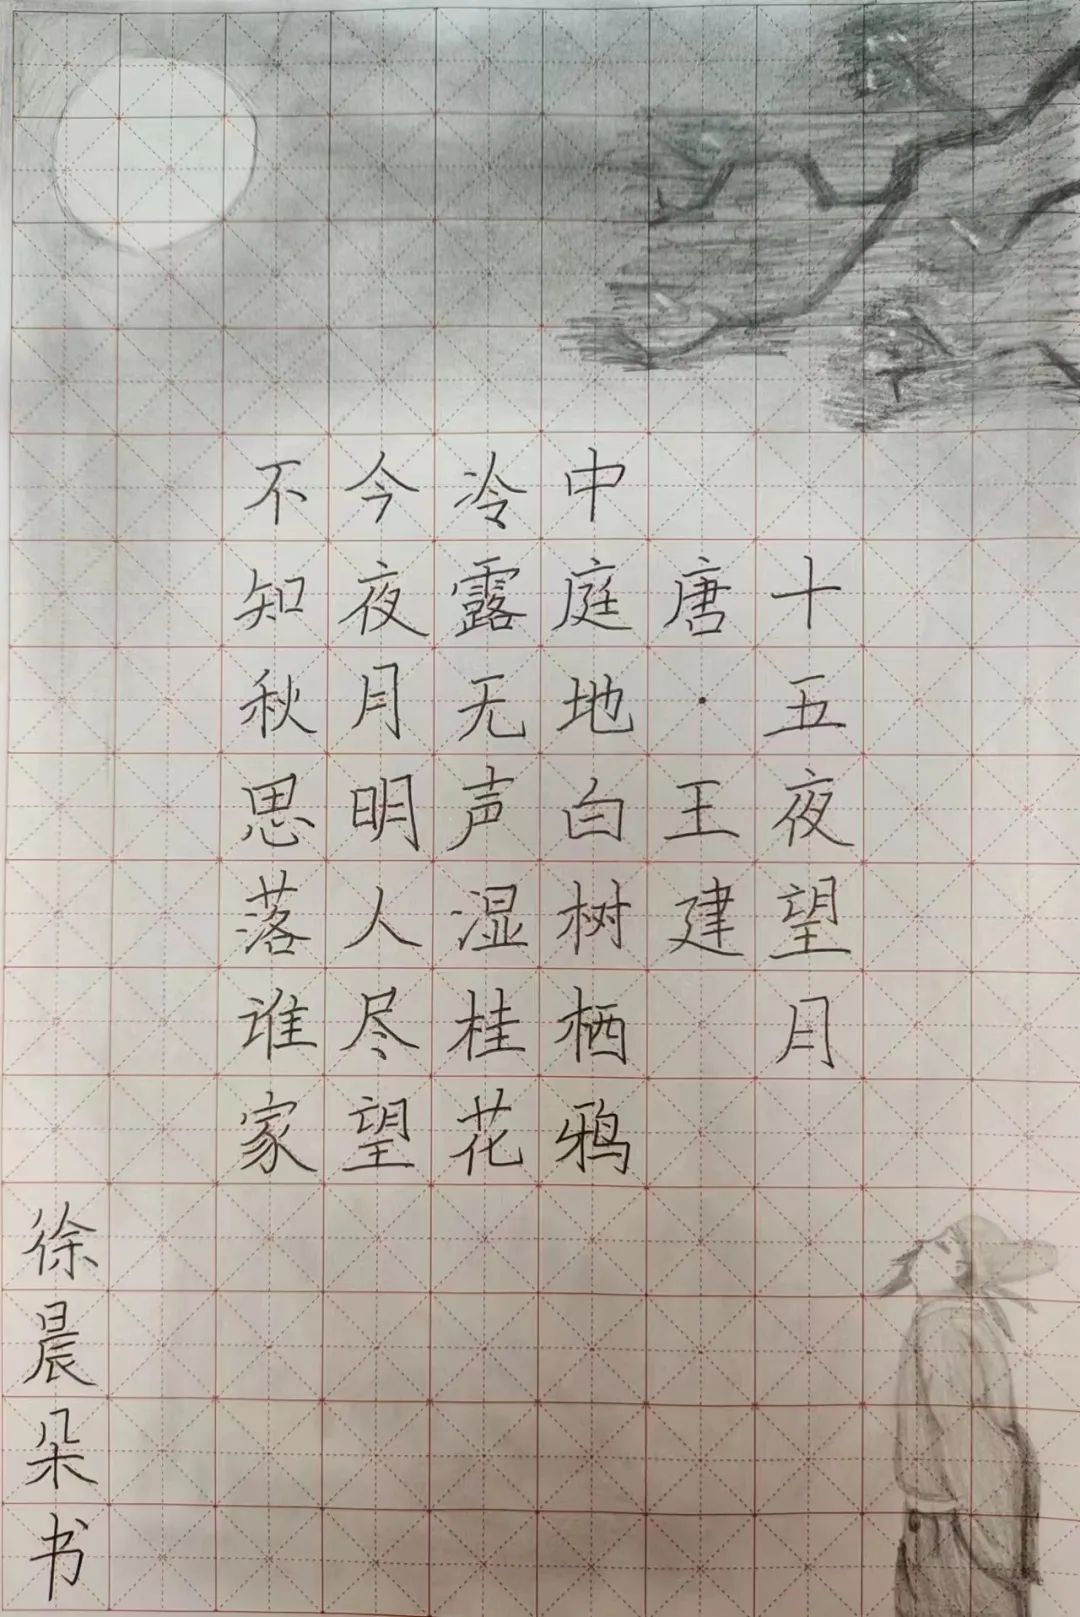 十五夜望月
唐·王建
中庭地白树栖鸦
冷露无声湿桂花
今夜月明人尽望
不知秋思落谁家
徐晨朵书